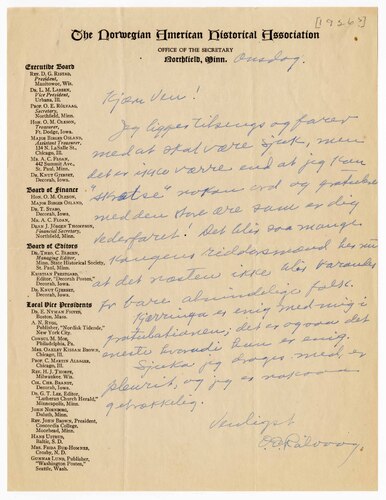 [1926?]
The Norwegian American Historical Association
OFFICE OF THE SECRETARY
Northfield, Minn.
Onsdag.
Executive Board
REV. D. G. RISTAD,
President,
Manitowoc, Wis.
DR. L. M. LARSEN,
Vice President,
Urbana, Ill.
PROF. O. E. RÖLVAAG,
Secretary,
Northfield, Minn.
HON. O. M. OLESON,
Treasurer,
Ft. Dodge, Iowa.
MAJOR BIRGER OSLAND,
Assistant Treasurer,
134 N. LaSalle St.
Chicago, Ill.
MR. A. C. FLOAN,
442 Summer Ave.
St. Paul, Minn.
DR. KNUT GJERSET,
Decorah, Iowa.
Board of Finance
HON. O. M. OLESON,
MAJOR BIRGER OSLAND,
DR. T. STABO,
Decorah, Iowa.
MR. A. C. FLOAN,
DEAN J. JÖRGEN THOMPSON,
Financial Secretary,
Northfield, Minn.
Board of Editors
DR. THEO. C. BLEGEN,
Managing Editor,
Minn. State Historical Society,
St. Paul, Minn.
KRISTIAN PRESTGARD,
Editor, "Decorah Posten",
Decorah, Iowa.
DR. KNUT GJERSET,
Decorah, Iowa.
Local Vice Presidents
DR. E. NYMAN FIGVED,
Boston, Mass.
A. N. RYGG,
Publisher, "Nordisk Tidende",
New York City.
CONSUL M. MOE,
Philadelphia, Pa.
MRS. OAKLEY KISSAM BROWN,
Chicago, Ill.
PROF. C. MARTIN ALSAGER,
Chicago, Ill.
REV. H. J. THORPE,
Milwaukee, Wis.
COL. CHR. BRANDT,
Decorah, Iowa.
DR. G. T. LEE, Editor,
"Lutheran Church Herald",
Minneapolis, Minn.
JOHN NORBERG,
Duluth, Minn.
REV. JOHN BROWN, President,
Concordia College,
Moorhead, Minn.
HANS USTRUD,
Baltic, S. D.
MRS. FRIDA BUE-HOMNES,
Crosby, N. D.
GUNNAR LUND, Publisher,
"Washington Posten",
Seattle, Wash.
Kjære Ven!
Jeg ligger til sengs og farer
med at skal være sjuk, men
det er ikke værre end at jeg kan
"skætse" nokon ord og gratulere
med den store ære som er dig
vederfaret! Det blis saa mange
Kongens riddersmænd her nu
at det næsten ikke blis
for bare almindelige folk.
Kjerringa er enig med mig i
gratulationen; det er ogsaa det
eneste hun er enig.
Sjuka jeg drages med, er
pleurit, og jeg er
Venligst
O. E. Rölvaag.